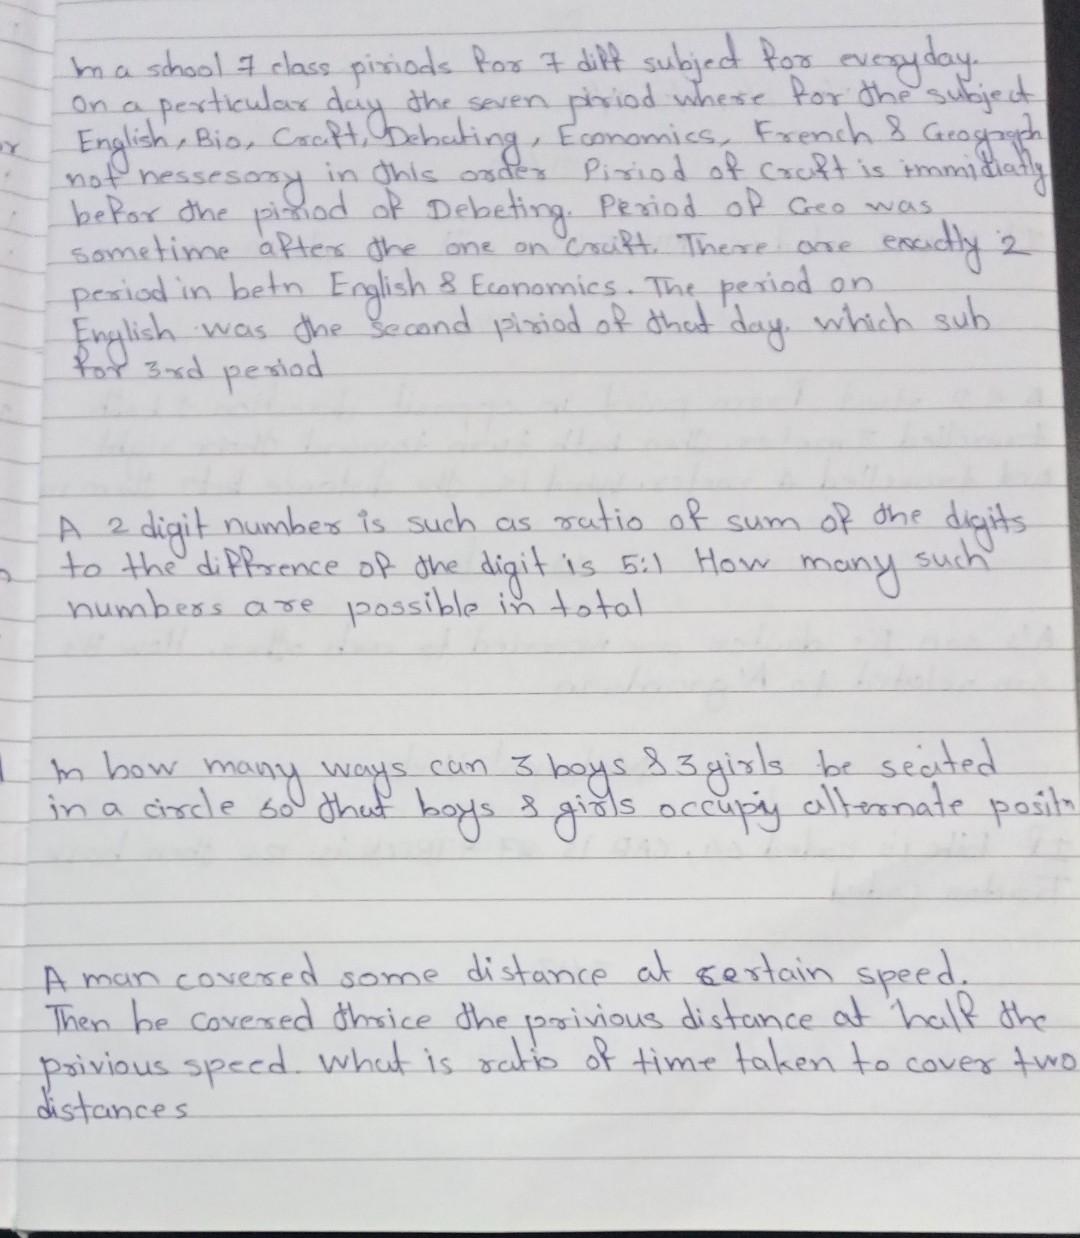 In a school 7 class piriods for 7 diff subject for everyday.
On a perticular day the seven piriod where for the subject
English, Bio, Craft, Debating, Economics, French & Geograph
not nessesory in this order Piriod of Craft is immidiatly
befor the piriod of Debeting. Period of Geo was
sometime after the one on Craft. There are exactly 2
period in betn English & Economics. The period on
English was the second piriod of that day. which sub
for 3rd period
A 2 digit number is such as ratio of sum of the digits
to the diffrence of the digit is 5:1 How many such
numbers are possible in total
In how many ways can 3 boys & 3 girls be seated
in a circle so that boys & girls occupy alternate positn
A man covered some distance at certain speed.
Then he covered thrice the privious distance at half the
privious speed. what is ratio of time taken to cover two
distances